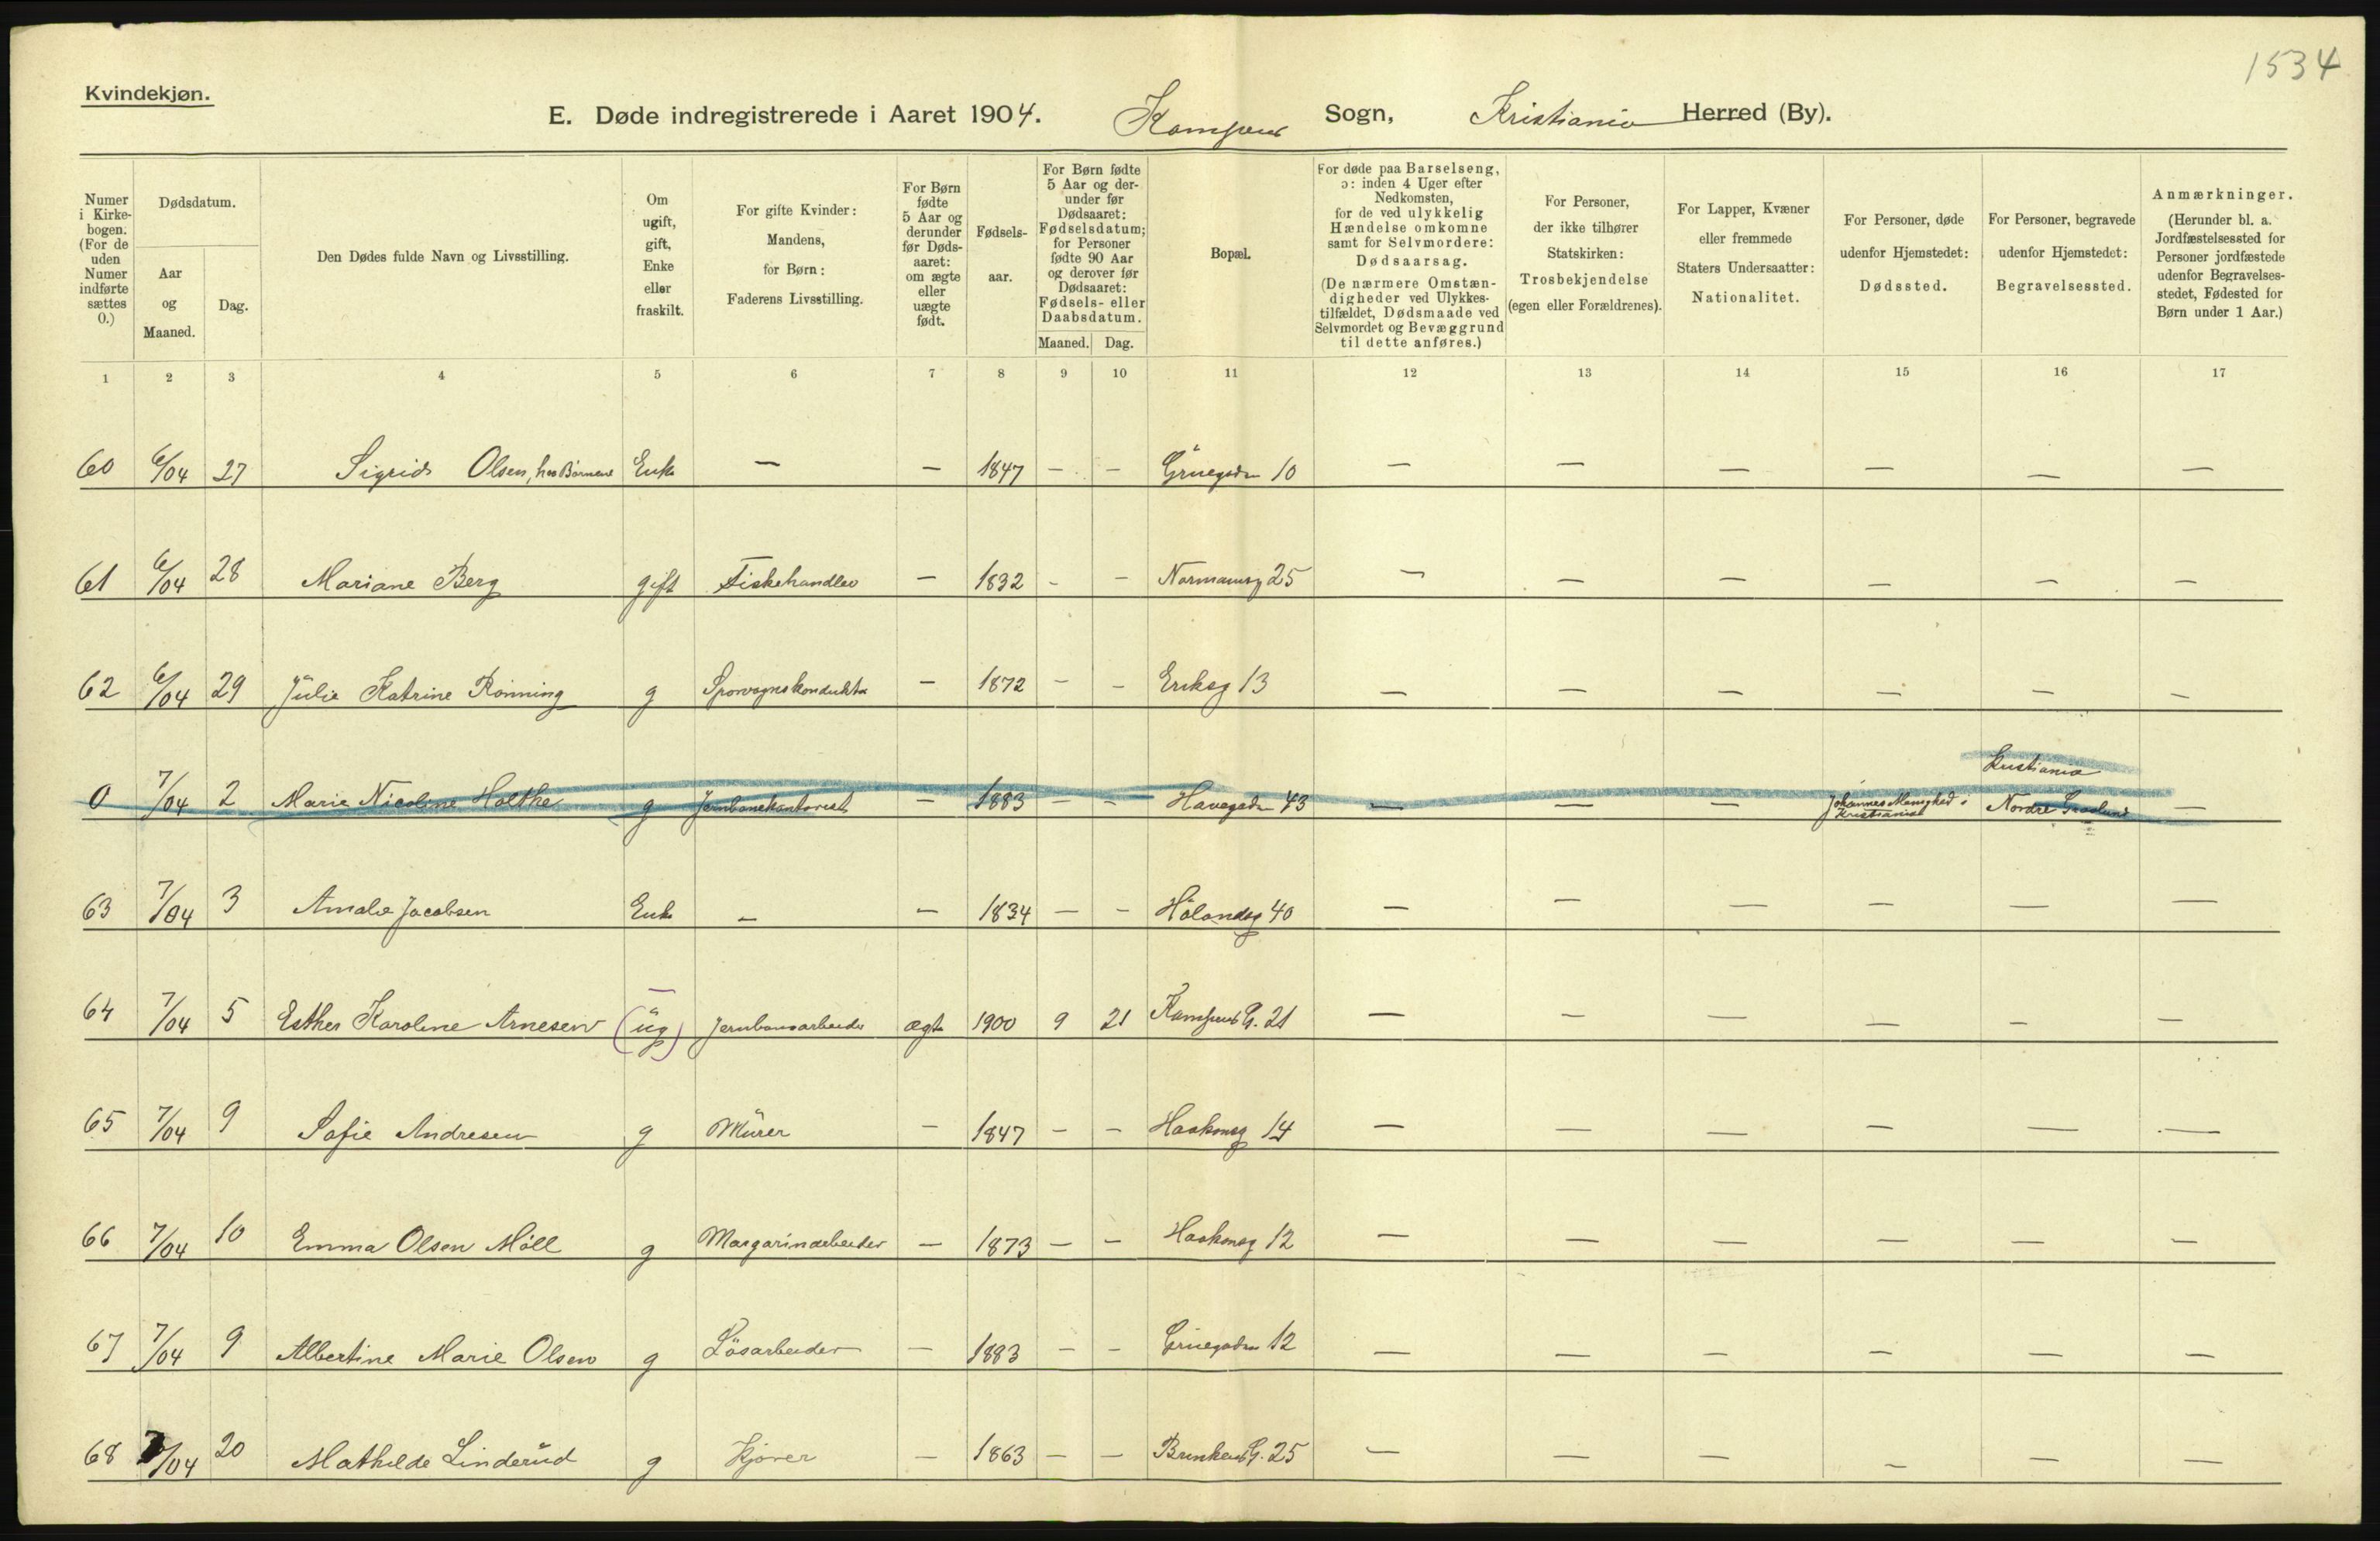 1534
Kvindekjøn.
E. Døde indregistrerede i Aaret 1904. Kampens Sogn, Kristiania Herred (By).
Numer i Kirke-bogen. (For de uden Numer indførte sættes 0.)
Dødsdatum.
Aar og Maaned.
Dag.
Den Dødes fulde Navn og Livsstilling.
Om ugift, gift, Enke eller fraskilt.
For gifte Kvinder: Mandens, for Børn: Faderens Livsstilling.
For Børn fødte 5 Aar og derunder før Døds-aaret: om ægte eller uægte født.
Fødsels-aar.
For Børn fødte 5 Aar og der-under før Dødsaaret: Fødselsdatum; for Personer fødte 90 Aar og derover før Dødsaaret: Fødsels- eller Daabsdatum.
Maaned. Dag.
Bopæl.
For døde paa Barselseng, ɔ: inden 4 Uger efter Nedkomsten, for de ved ulykkelig Hændelse omkomne samt for Selvmordere: Dødsaarsag.
(De nærmere Omstæn-digheder ved Ulykkes-tilfældet, Dødsmaade ved Selvmordet og Bevæggrund til dette anføres.)
For Personer, der ikke tilhører Statskirken: Trosbekjendelse (egen eller Forældrenes).
For Lapper, Kvæner eller fremmede Staters Undersaatter: Nationalitet.
For Personer, døde udenfor Hjemstedet: Dødssted.
For Personer, begravede udenfor Hjemstedet: Begravelsessted.
Anmærkninger.
(Herunder bl. a. Jordfæstelsessted for Personer jordfæstede udenfor Begravelses-stedet, Fødested for Børn under 1 Aar.)
1 2 3 4 5 6 7 8 9 10 11 12 13 14 15 16 17
60 6/04 27 Sigrid Olsen, hos Børnene Enke — — 1847 — — Grüegaden 10 — — — — — —
61 6/04 28 Mariane Berg gift Fiskehandler — 1832 — — Normannsg 25 — — — — — —
62 6/04 29 Jülie Katrine Rönning g Sporvognskonduktør — 1872 — — Eriksg 13 — — — — — —
Kristiania
0 7/04 2 Marie Nicoline Holthe g Jernbanekontorist — 1883 — — Havegaden 43 — — — Johannes Menighed i Kristiania Nordre —
63 7/04 3 Amalie Jacobsen Enke — — 1834 — — Hölandsg 40 — — — — — —
64 7/04 5 Esther Karoline Arnesen (üg) — Jernbanearbeider ægte 1900 9 21 Kampens G. 21 — — — — — —
65 7/04 9 Sofie Andresen g Mürer — 1847 — — Haakonsg 14 — — — — — —
66 7/04 10 Emma Olsen Möll g Margarinarbeider — 1873 — — Haakonsg 12 — — — — — —
67 7/04 9 Albertine Marie Olsen g Lösarbeider — 1883 — — Grüegaden 12 — — — — — —
68 7/04 20 Mathilde Linderüd g Kjörer — 1863 — — Brinkens G. 25 — — — — — —